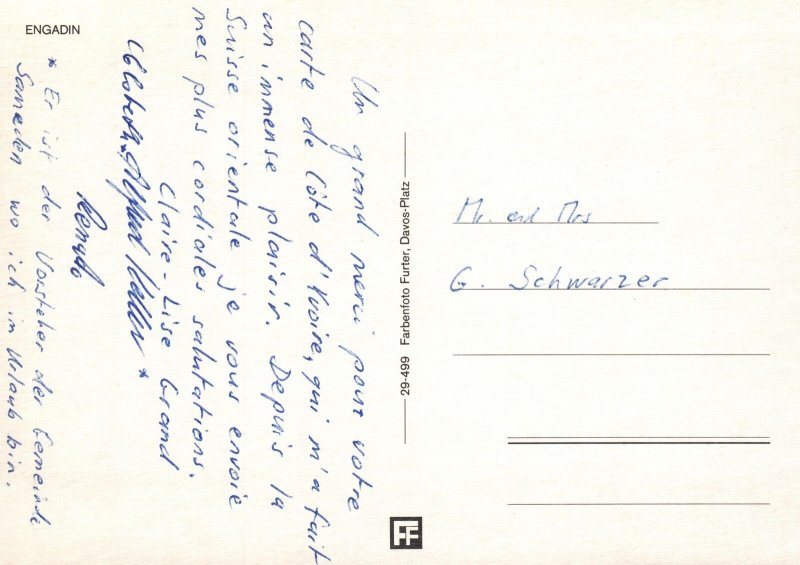 ENGADIN
Un grand merci pour votre
carte de Côte d'Yvoire, qui m'a fait
un immense plaisir. Depuis la
Suisse orientale je vous envoie
mes plus cordiales salutations.
Claire-Lise Grand
*
* Er ist der Vorsteher der Gemeinde
Samedan wo ich in Urlaub bin.
29-499 Farbenfoto Furter, Davos-Platz
Mr. and Mrs
G. Schwarzer
FF